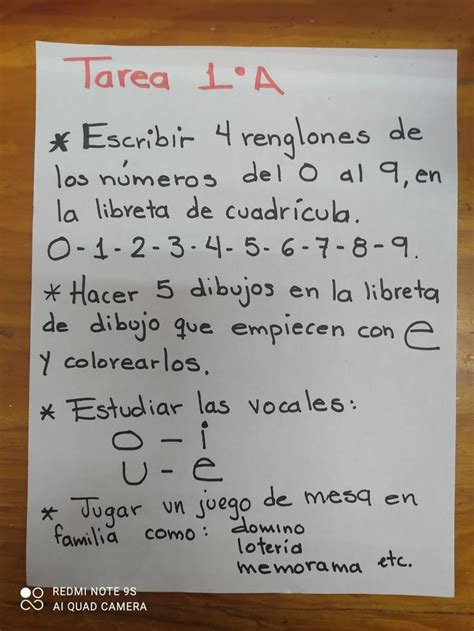 Tarea 1°A
* Escribir 4 renglones de
los números del 0 al 9, en
la libreta de cuadrícula.
0-1-2-3-4-5-6-7-8-9.
* Hacer 5 dibujos en la libreta
de dibujo que empiecen con e
y colorearlos.
* Estudiar las vocales:
o - i
u - e
* Jugar un juego de mesa en
familia como: domino
lotería
memorama etc.
REDMI NOTE 9S
AI QUAD CAMERA